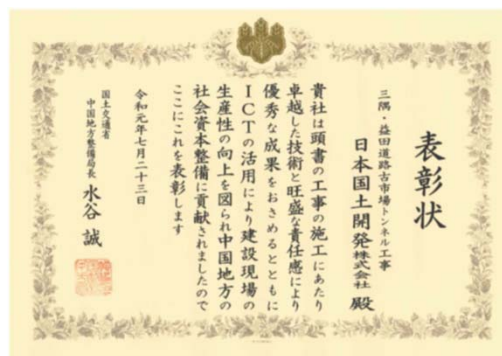 表彰状
三隅・益田道路古市場トンネル工事
日本国土開発株式会社 殿
貴社は頭書の工事の施工にあたり
卓越した技術と旺盛な責任感により
優秀な成果をおさめるとともに
ICTの活用により建設現場の
生産性の向上を図られ中国地方の
社会資本整備に貢献されましたので
ここにこれを表彰します
令和元年七月二十三日
国土交通省
中国地方整備局長 水谷 誠